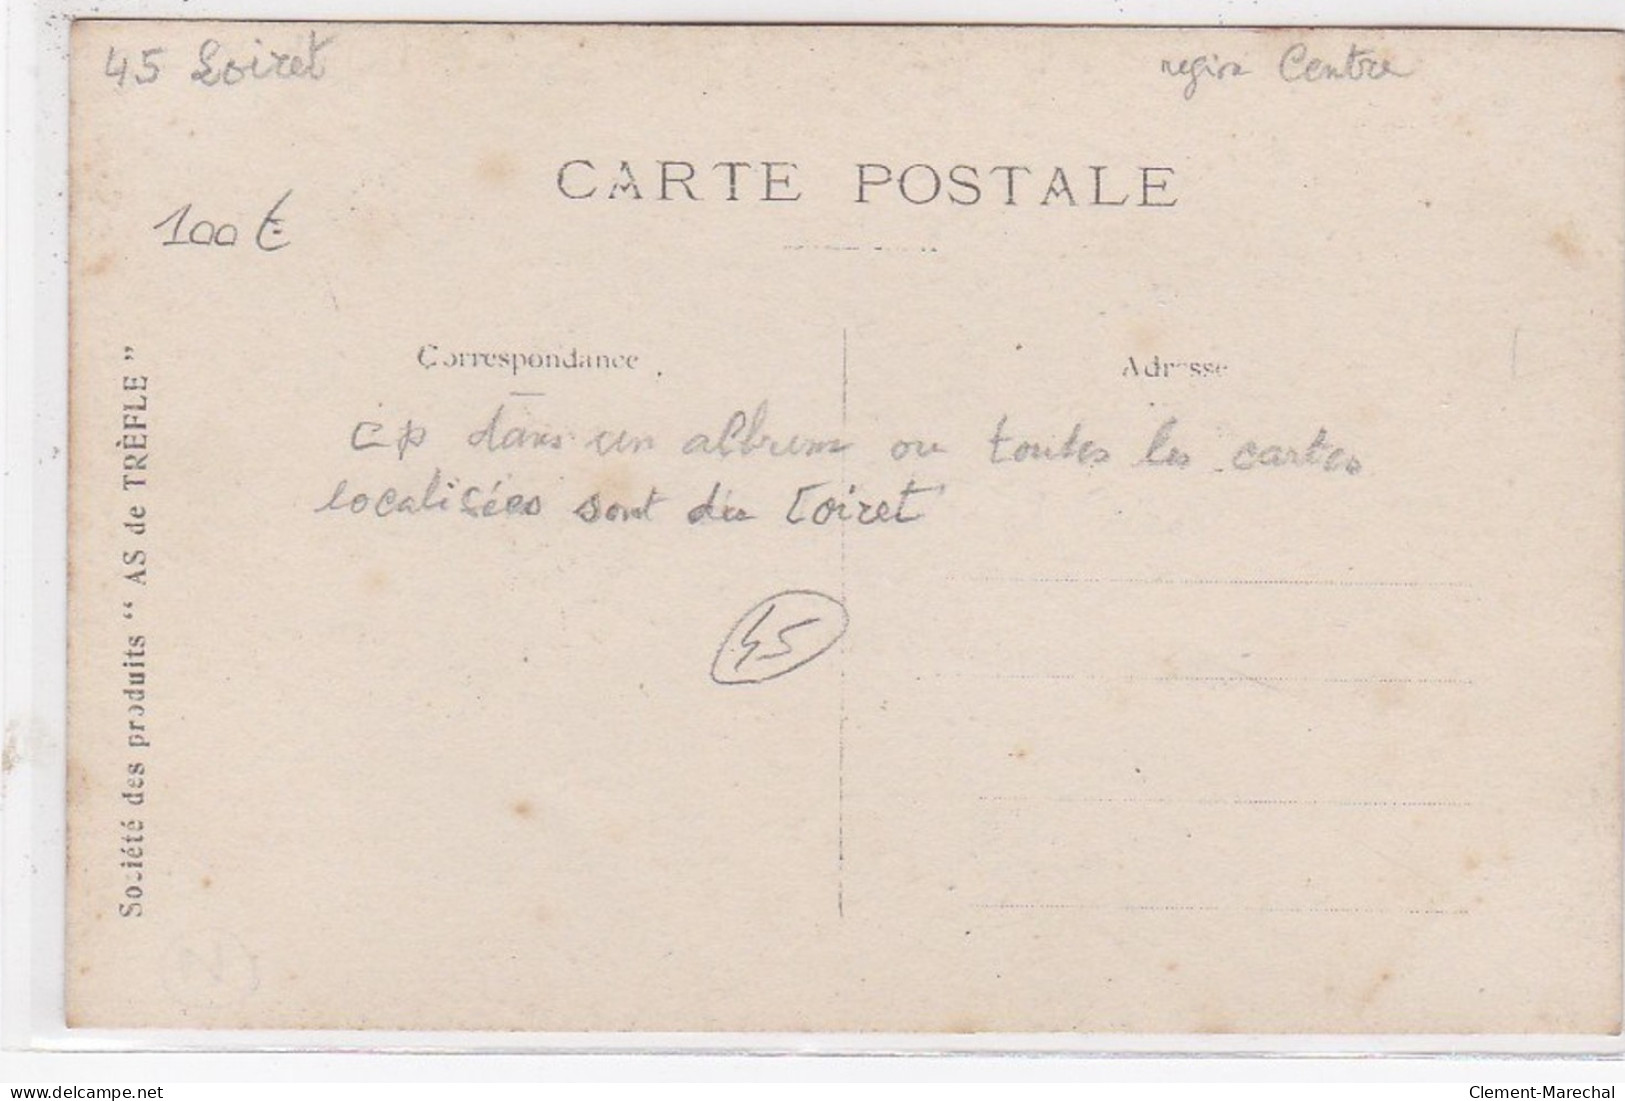 45 Loiret
region Centre
CARTE POSTALE
100€
Correspondance
Adresse
CP dans un album ou toutes les cartes
localisées sont du Loiret
45
Société des produits “ AS de TRÈFLE ”
N
www.delcampe.net
Clement-Marechal